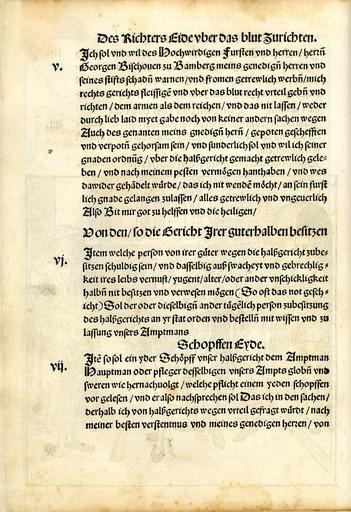 Des Richters Eide vber das blut Zurichten.
v.
Ich sol vnd wil des Hochwirdigen Fursten vnd herren/ herrñ
Georgen Bischouen zu Bamberg meins genedigñ herren vnd
seines stifts schadñ warnen/ vnd fromen getrewlich werbñ/ mich
rechts gerichts fleissigē vnd vber das blut recht vrteil gebñ vnd
richten/ dem armen als dem reichen/ vnd das nit lassen/ weder
durch lieb laid myet gabe noch von keiner andern sachen wegen
Auch des genanten meins gnedigñ herñ/ gepoten gescheffen
vnd verpotñ gehorsam sein/ vnd sunderlich sol vnd wil ich seiner
gnaden ordnūg/ vber die halßgericht gemacht getrewlich gele-
ben/ vnd nach meinem pesten vermögen hanthaben/ vnd wes
dawider gehādelt würde/ das ich nit wendē möcht/ an sein fürst
lich gnade gelangen zulassen/ alles getrewlich vnd vngeuerlich
Also Bit mir got zu helffen vnd die heiligen/
Von den/ so die Gericht Jrer guterhalben besitzen
vj.
Jtem welche person von irer güter wegen die halßgericht zube-
sitzen schuldig sein/ vnd dasselbig auß swacheyt vnd gebrechlig-
keit ires leibs vernuft/ yugent/ alter/ oder ander vnschicklighkeit
halbñ nit besitzen vnd verwesen mögen (So oft das not gesch-
icht) Sol der oder dieselbigñ ander tügelich person zubesitzung
des halßgerichts an yr stat orden vnd bestellñ mit wissen vnd zu
lassung vnsers Amptmans
Schopffen Eyde.
vij.
Jtē so sol ein yder Schöpff vnser halßgericht dem Amptman
Hauptman oder pfleger desselbigen vnsers Ampts globñ vnd
sweren wie hernachuolgt/ welche pflicht einem yeden schopffen
vor gelesen/ vnd er also nachsprechen sol Das ich in den sachen/
derhalb ich von halßgerichts wegen vrteil gefragt würdt/ nach
meiner besten verstentnus vnd meines genedigen herren/ von